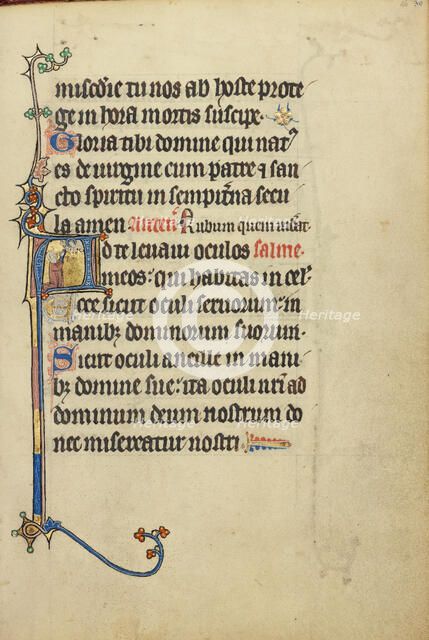 misc̄die tu nos ab hoste prote
ge in hora mortis suscipe.
Gloria tibi domine qui nat᷒
es de virgine cum patre ⁊ san
cto spiritu in sempit̄na secu
la amen Rubum quem uiꝰat.
Ad te leuaui oculos salme.
meos: qui habitas in cel᷒
Ecce sicut oculi seruorum: in
manibꝫ dominorum suorum.
Sicut oculi ancille in mani
bꝫ domine sue: ita oculi nr̄i ad
dominum deum nostrum do
nec misereatur nostri
Heritage Heritage
Heritage Heritage
Heritage Heritage